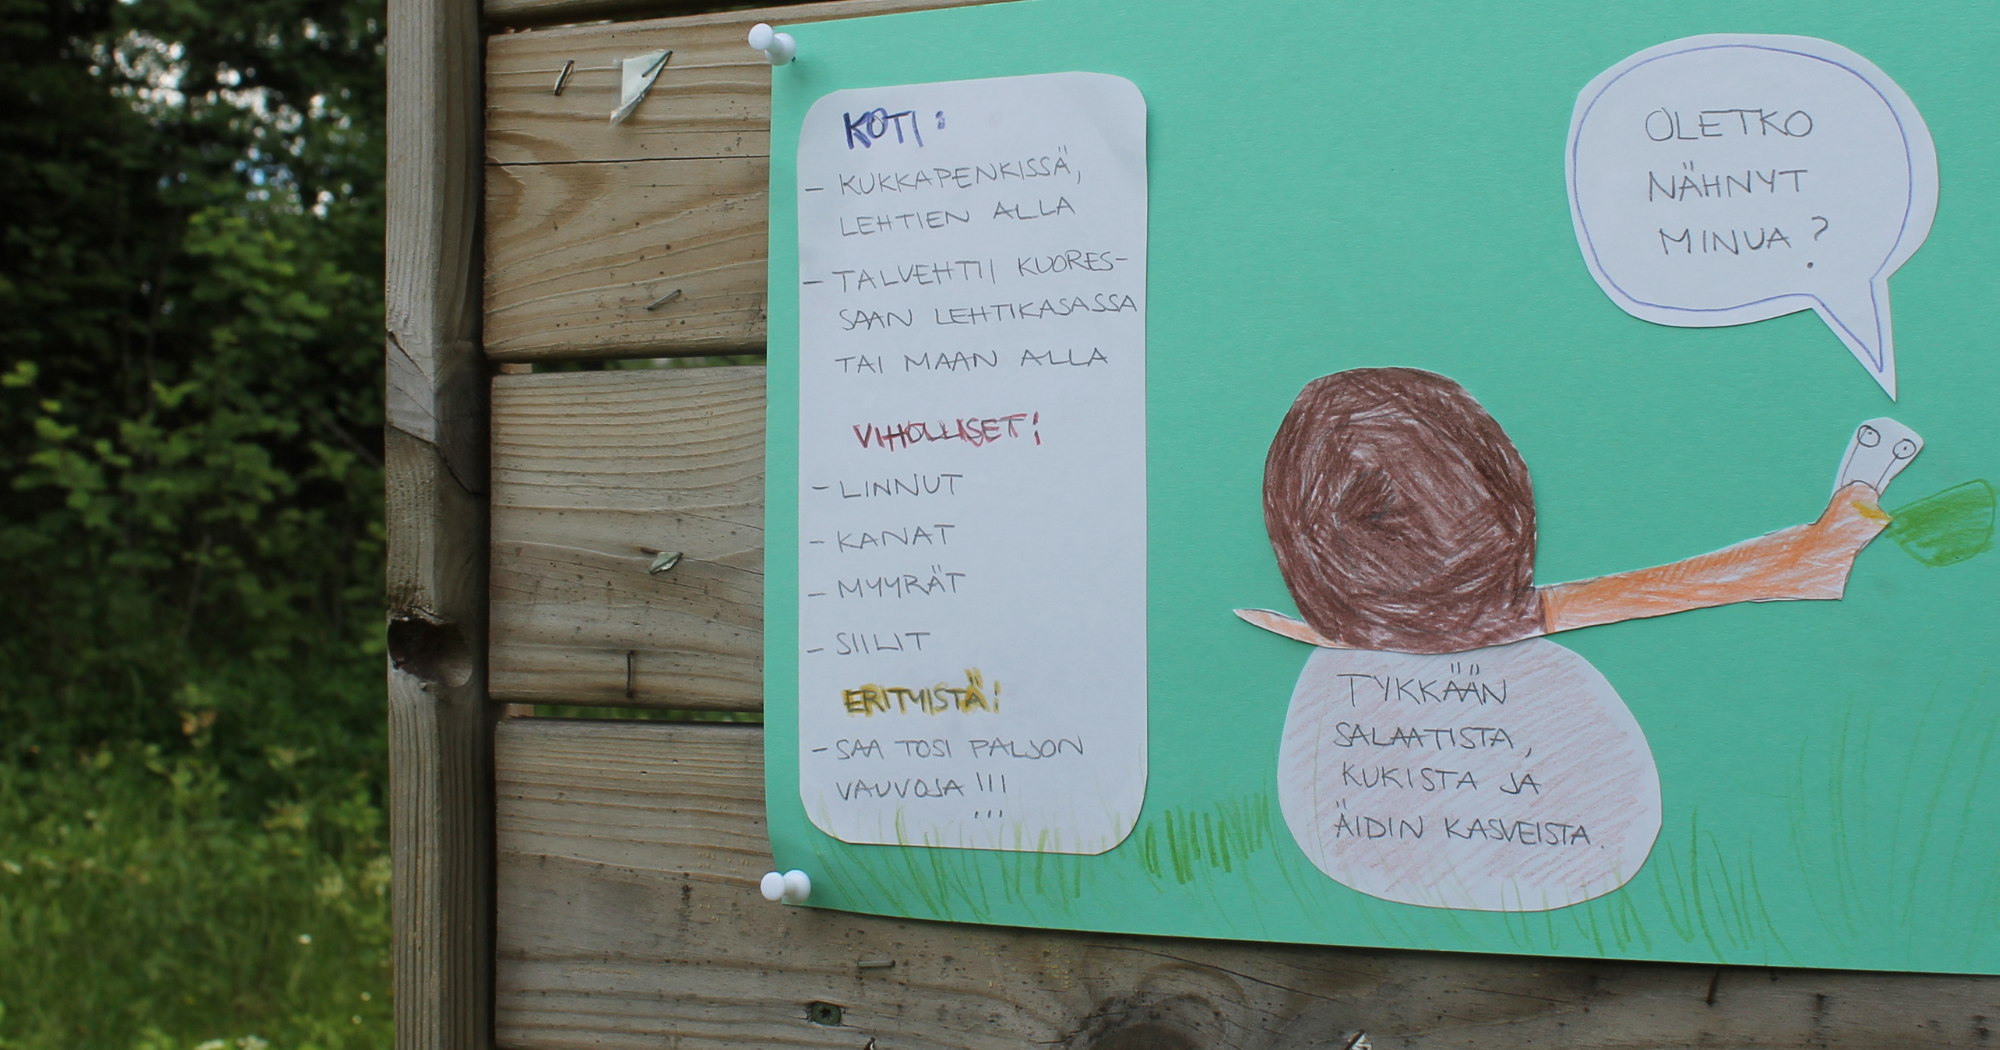 KOTI:
- KUKKAPENKISSÄ,
LEHTIEN ALLA
- TALVEHTII KUORES-
SAAN LEHTIKASASSA
TAI MAAN ALLA
VIHOLLISET:
- LINNUT
- KANAT
- MYYRÄT
- SIILIT
ERITYISTÄ:
- SAA TOSI PALJON
VAUVOJA !!!
!!!
OLETKO
NÄHNYT
MINUA?
TYKKÄÄN
SALAATISTA,
KUKISTA JA
ÄIDIN KASVEISTA.